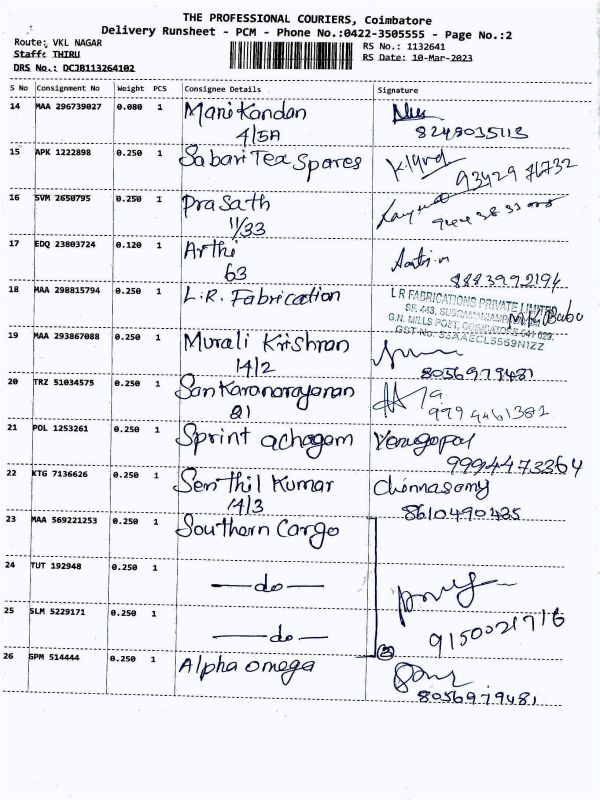 THE PROFESSIONAL COURIERS, Coimbatore
Delivery Runsheet - PCM - Phone No.:0422-3505555 - Page No.:2
Route: VKL NAGAR
RS No.: 1132641
Staff: THIRU
RS Date: 10-Mar-2023
DRS No.: DCJB113264102
S No Consignment No Weight PCS Consignee Details Signature
14 MAA 296739027 0.080 1 Manikandan
4/5A 8248035113
15 APK 1222898 0.250 1 Sabari Tex Spares
93429 76732
16 SVM 2650795 0.250 1 Prasath
11/33
17 EDQ 23803724 0.120 1 Arthi
63 8883992194
18 MAA 298815794 0.250 1 L.R. Fabrication L R FABRICATIONS PRIVATE LIMITED
SF. 443,
G.N. MILLS POST, COIMBATORE-641 029.
GST-No: 33AAECL5569N1ZZ
19 MAA 293867088 0.250 1 Murali Krishnan
14/2 8056979481
20 TRZ 51034575 0.250 1 Sankaranarayanan
21 POL 1253261 0.250 1 Sprint achagam Venugopal
9994473364
22 KTG 7136626 0.250 1 Senthil Kumar Chinnasamy
14/3 8610490435
23 MAA 569221253 0.250 1 Southern Cargo
24 TUT 192948 0.250 1 —do—
25 SLM 5229171 0.250 1 —do— 9150021716
3
26 GPM 514444 0.250 1 Alpha omega
8056979481